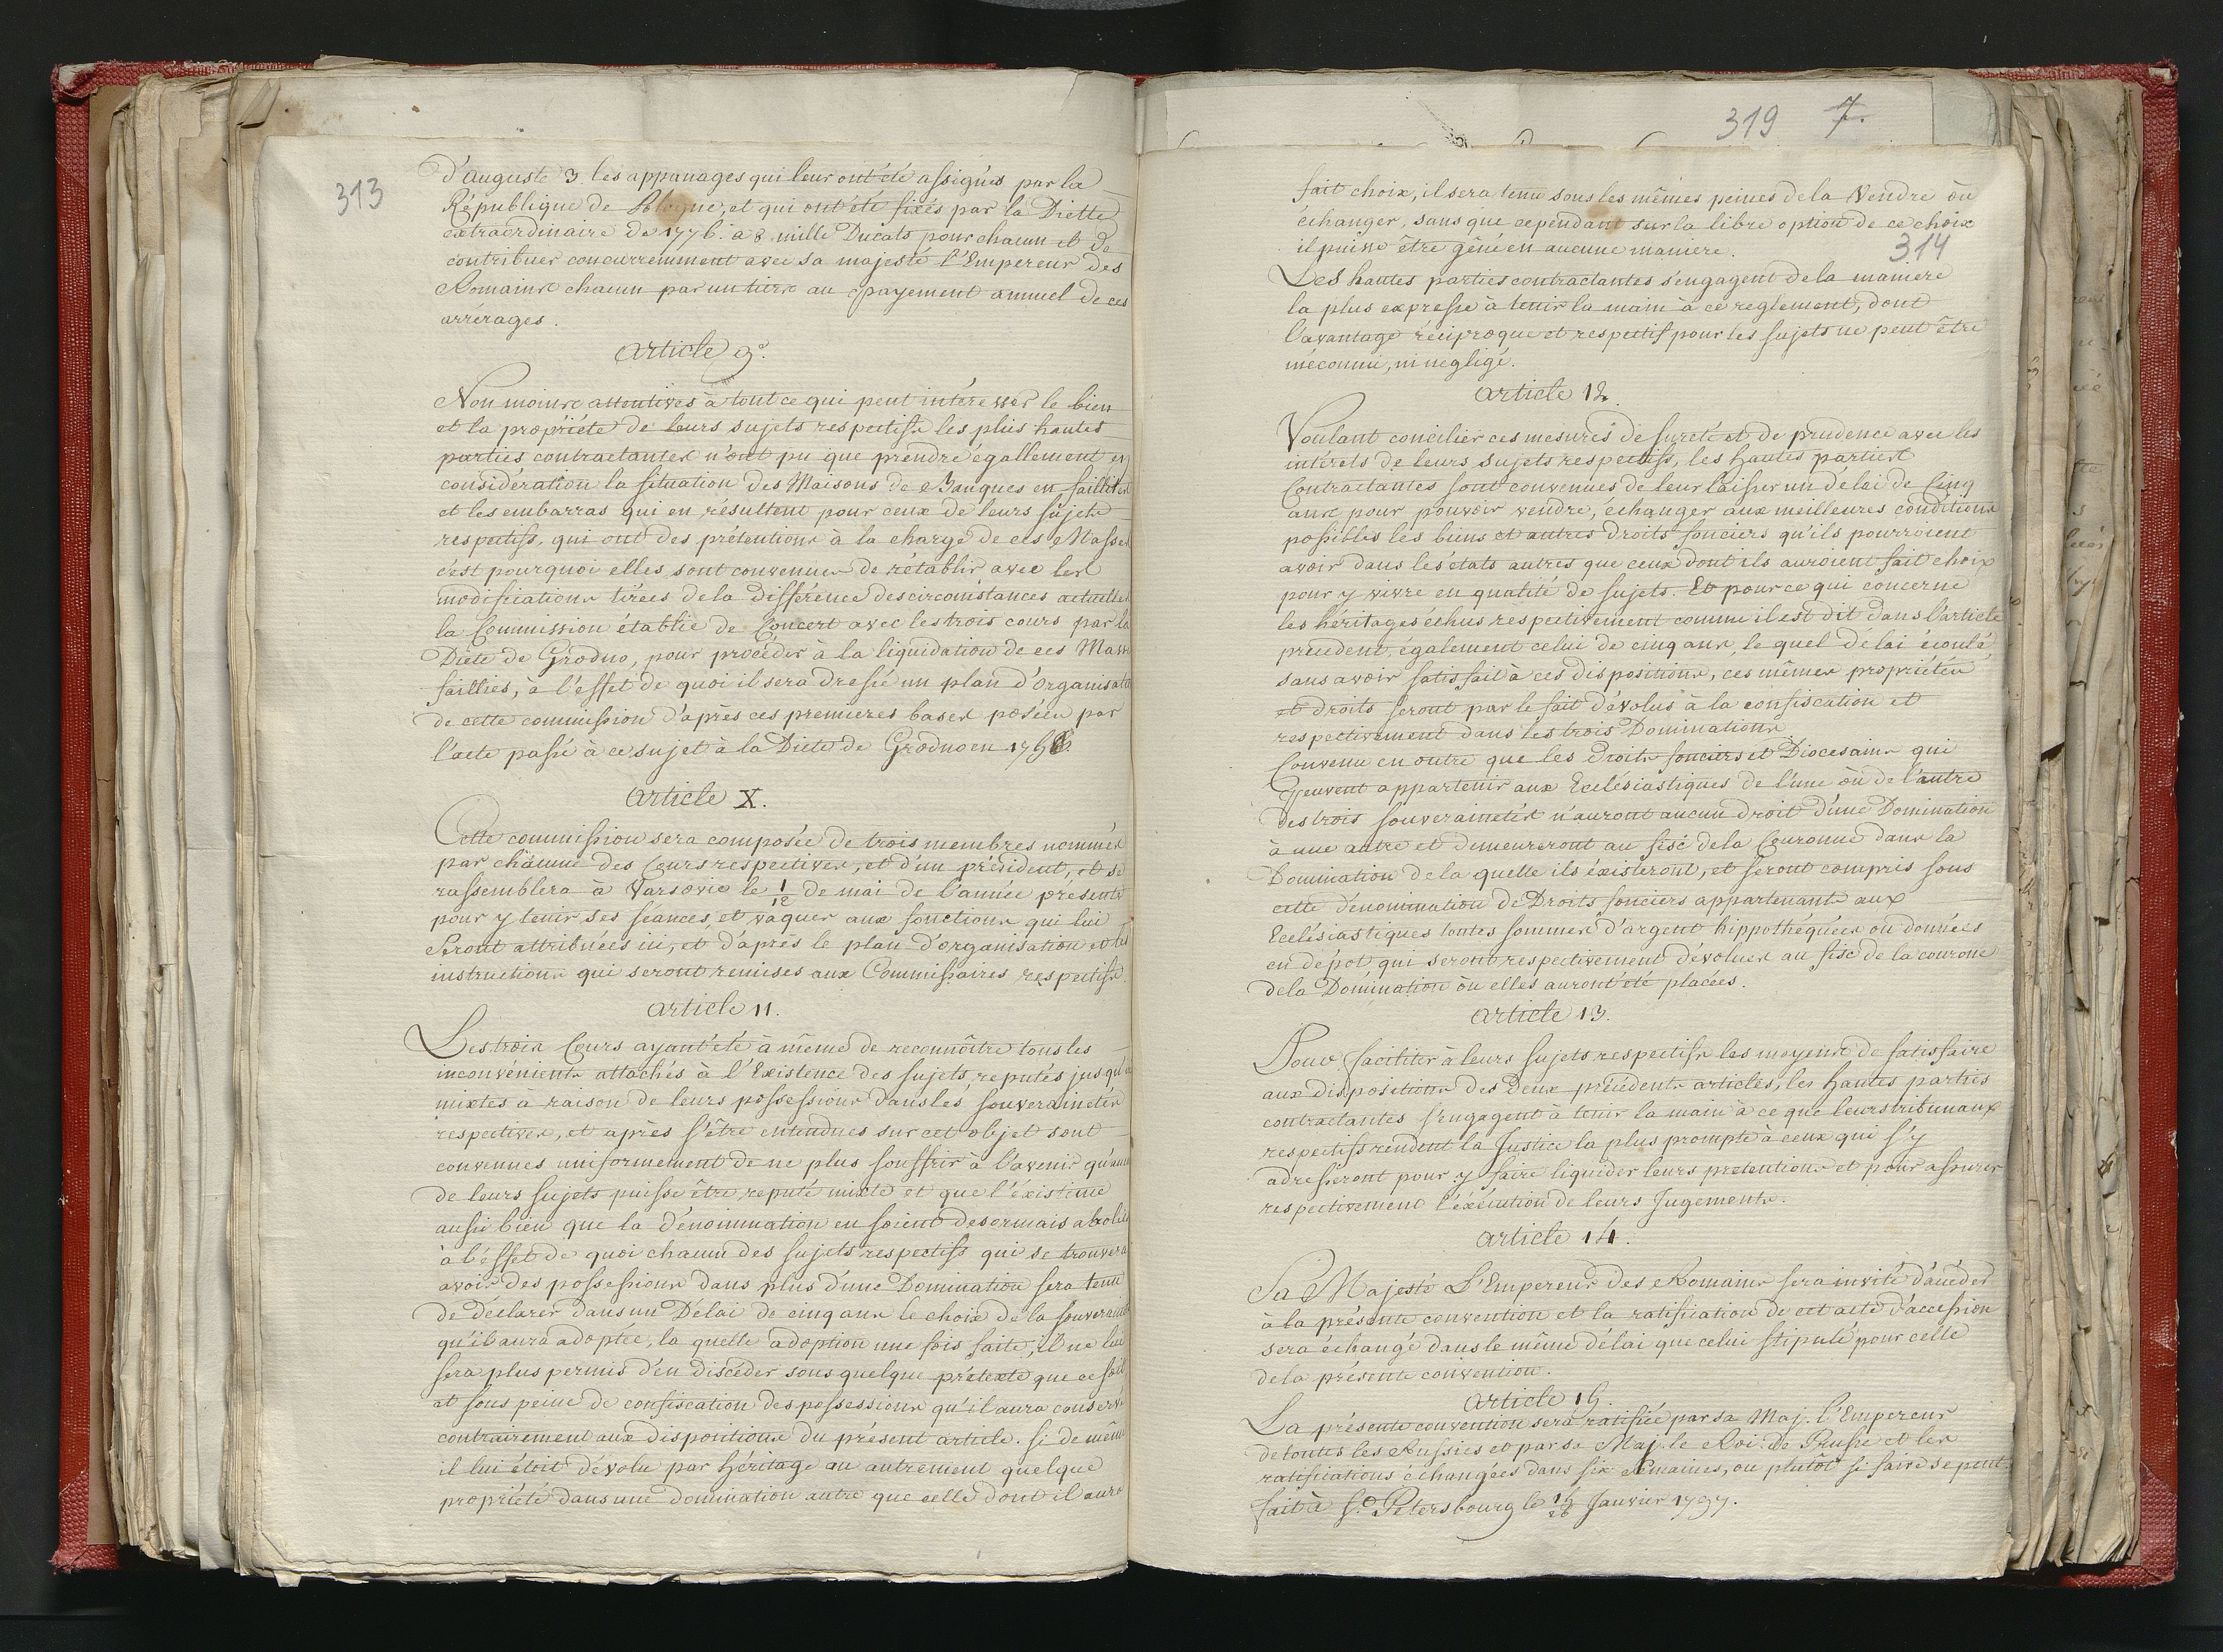 313
d'auguste 3. les appanages qui leur ont été assignés par la
République de Pologne, et qui ont été fixés par la Diette
extraordinaire de 1776. à 8 mille Ducats pour chacun et de
contribuer concurremment avec sa majesté l'Empereur des
Romains chacun par un tiers au payement annuel de ces
arrérages.
Article 9e.
Non moins attentives à tout ce qui peut intéresser le bien
et la propriété de leurs sujets respectifs les plus hautes
parties contractantes n'ont pu que prendre égallement en
considération la situation des Maisons de Banques en faillites
et les embarras qui en résultent pour ceux de leurs sujets
respectifs, qui ont des prétentions à la charge de ces Masses
c'est pourquoi elles sont convenues de rétablir avec les
modifications tirées de la différence des circonstances actuelles
la Commission établie de Concert avec les trois cours par la
Diete de Grodno, pour procéder à la liquidation de ces Masses
faillies, à l'effet de quoi il sera dressé un plan d'Organisation
de cette commission d'après ces premieres bases posées par
l'acte passé à ce sujet à la Diete de Grodno en
Article X.
Cette commission sera composée de trois membres nommés
par chacune des Cours respectives, et d'un président, et se
rassemblera à Varsovie le 1/12 de mai de l'année présente
pour y tenir ses séances, et vaquer aux fonctions qui lui
Seront attribuées ici, et d'après le plan d'organisation et les
instructions qui seront remises aux Commissaires respectifs.
Article 11.
Les trois Cours ayant été à même de reconnoître tous les
inconvénients attachés à l'Existence des sujets, reputés jusqu'à
mixtes a raison de leurs possessions dans les souverainetés
respectives, et après s'être entendues sur cet objet sont
convenues uniformement de ne plus souffrir à l'avenir qu'aucun
de leurs sujets puisse être reputé mixte et que l'éxistence
aussi bien que la dénomination en soient desormais abolies
à l'effet de quoi chacun des sujets respectifs qui se trouvera
avoir des possessions dans plus d'une Domination sera tenu
de déclarer dans un Délai de cinq ans le choix de la souveraineté
qu'il aura adoptée, la quelle adoption une fois faite, il ne lui
sera plus permis d'en discéder sous quelque prétexte que ce soit
et sous peine de confiscation des possessions qu'il aura conservé
contrairement aux dispositions du présent article. si de même
il lui étoit dévolu par héritage au autrement quelque
propriété dans une domination autre que celle dont il aura
319 7.
314
fait choix, il sera tenu sous les mêmes peines de la Vendre où
échanger, sans que cependant sur la libre option de ce choix
il puisse être gêné en aucune maniere.
Les hautes parties contractantes s'engagent de la maniere
la plus expresse à tenir la main à ce reglement, dont
l'avantage réciproque et respectif pour les sujets ne peut être
méconnu, ni negligé.
Article 12.
Voulant concilier ces mesures de sureté et de prudence avec les
intérets de leurs sujets respectifs, les hautes parties
Contractantes sont convenues de leur laisser un délai de Cinq
ans pour pouvoir vendre, échanger aux meilleures conditions
possibles les biens et autres droits fonciers qu'ils pourroient
avoir dans les états autres que ceux dont ils auroient fait choix
pour y vivre en qualité de sujets. Et pour ce qui concerne
les héritages échus respectivement comme il est dit dans l'article
précedent, également celui de cinq ans, le quel délai écoulé
sans avoir satisfait à ces dispositions, ces mêmes propriétés
et droits seront par le fait dévolus à la confiscation et
respectivement dans les trois Dominations.
Convenu en outre que les Droits fonciers et Diocesains qui
Peuvent appartenir aux Ecclésiastiques de l'une où de l'autre
Des trois souverainetés n'auront aucun droit d'une Domination
à une autre et demeureront au fisc de la Couronne dans la
Domination de la quelle ils éxisteront, et seront compris sous
cette dénomination de Droits fonciers appartenants aux
Ecclésiastiques toutes sommes d'argent hippothéquées ou données
en dépot, qui seront respectivement dévolues au fisc de la courone
de la Domination où elles auront été placées.
Article 13.
Pour faciliter à leurs sujets respectifs les moyens de satisfaire
aux dispositions des Deux précédents articles, les hautes parties
contractantes s'engagent à tenir la main à ce que leurs tribunaux
respectifs rendent la Justice la plus prompte à ceux qui s'y
adresseront pour y faire liquider leurs prétentions et pour assurer
respectivement l'éxécution de leurs Jugements.
Article 14.
Sa Majesté L'Empereur des Romains sera invité d'accéder
à la présente convention et la ratification de cet acte d'accession
sera échangé dans le même délai que celui stipulé pour celle
de la présente convention.
Article 15.
La présente convention sera ratifiée par sa Maj. l'Empereur
de toutes les Russies et par sa Maj. le Roi de Prusse et les
ratifications échangées dans six semaines, ou plutôt si faire se peut.
fait à St. Petersbourg le 15/26 Janvier 1797.